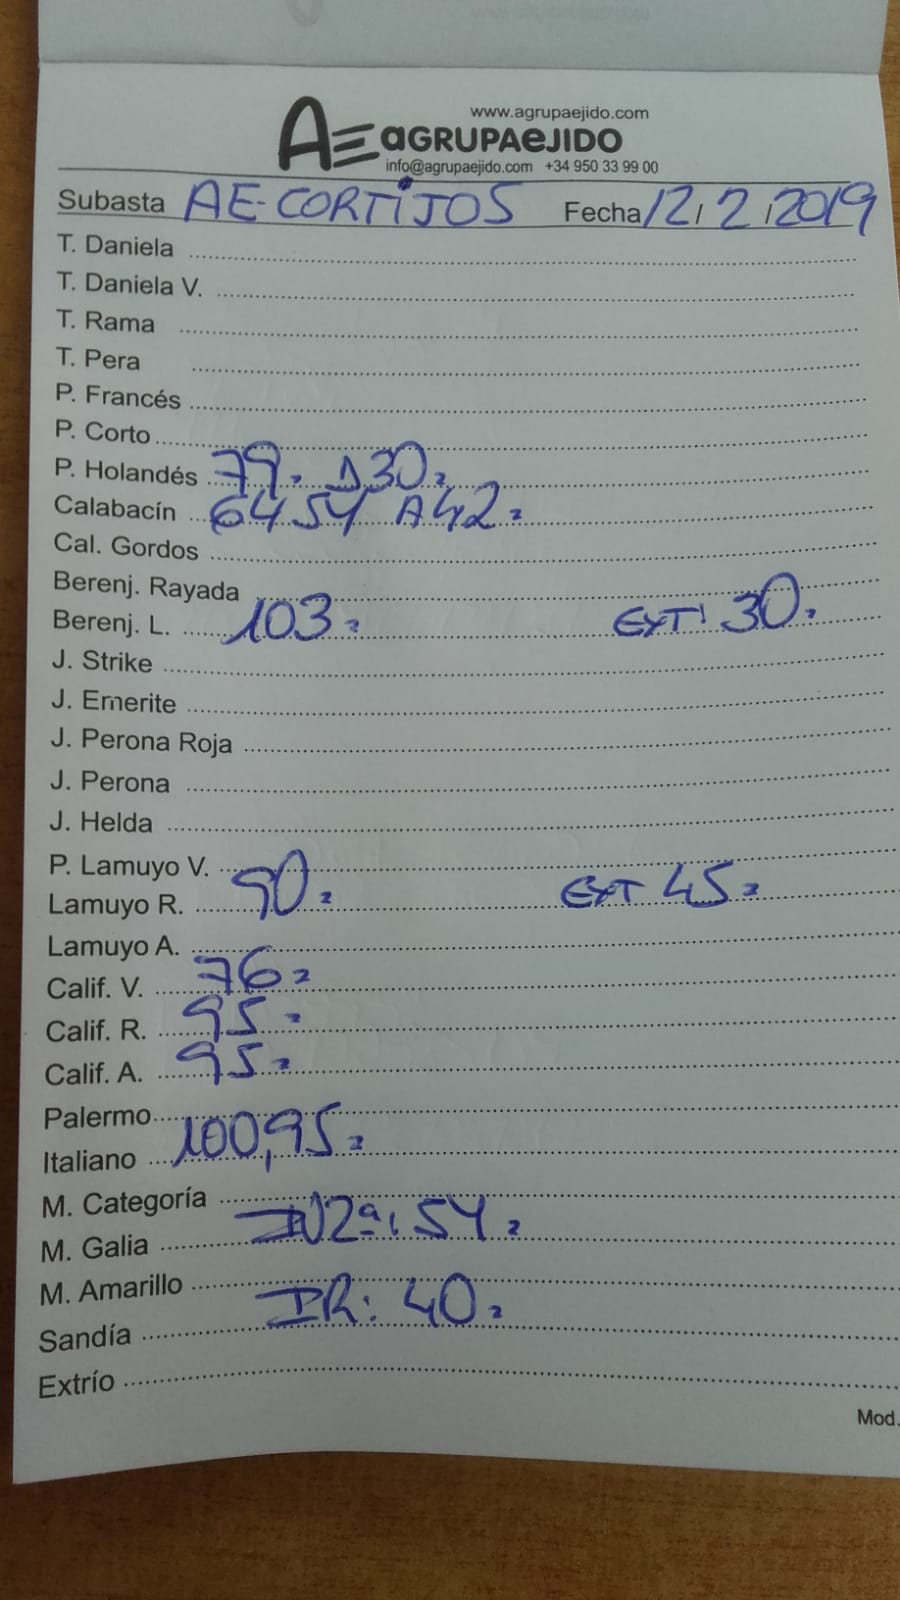 www.agrupaejido.com
AE aGRUPAeJIDO
info@agrupaejido.com +34 950 33 99 00
Subasta AE-CORTIJOS Fecha 12/2/2019
T. Daniela
T. Daniela V.
T. Rama
T. Pera
P. Francés
P. Corto
P. Holandés 79 30
Calabacín 64 54 A 42
Cal. Gordos
Berenj. Rayada
Berenj. L. 103 EXT: 30
J. Strike
J. Emerite
J. Perona Roja
J. Perona
J. Helda
P. Lamuyo V.
Lamuyo R. 90 EXT 45
Lamuyo A.
Calif. V. 76
Calif. R. 95
Calif. A. 95
Palermo
Italiano 100,95
M. Categoría
M. Galia 2ª: 54
M. Amarillo
Sandía IR: 40
Extrío
Mod.